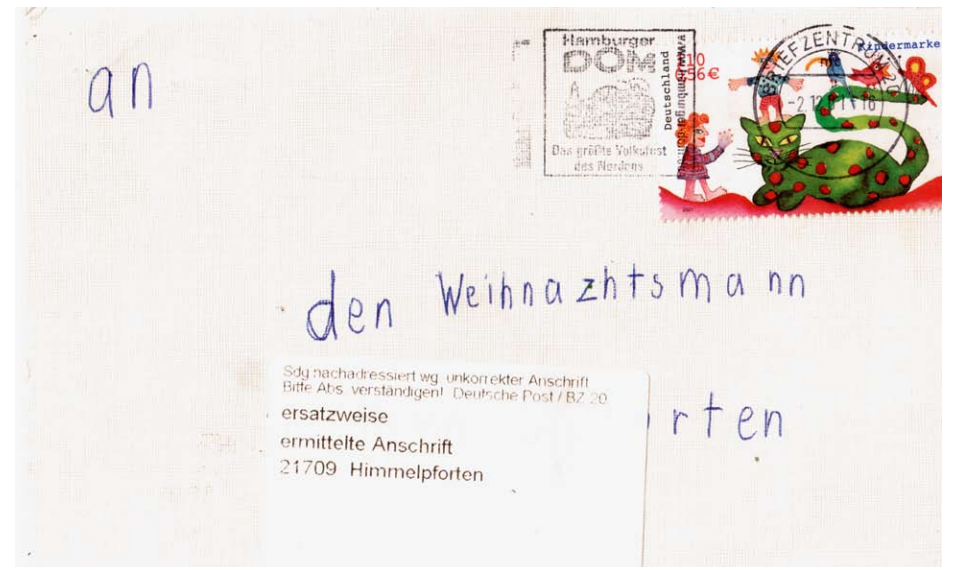 an
Hamburger
DOM
Das größte Volksfest
des Nordens
Deutschland
110
0,56€
Kindermarke
BRIEFZENTRUM 20
den Weihnazhtsmann
Sdg nachadressiert wg. unkorrekter Anschrift
Bitte Abs. verständigen! Deutsche Post / BZ 20
ersatzweise
ermittelte Anschrift
21709 Himmelpforten
rten